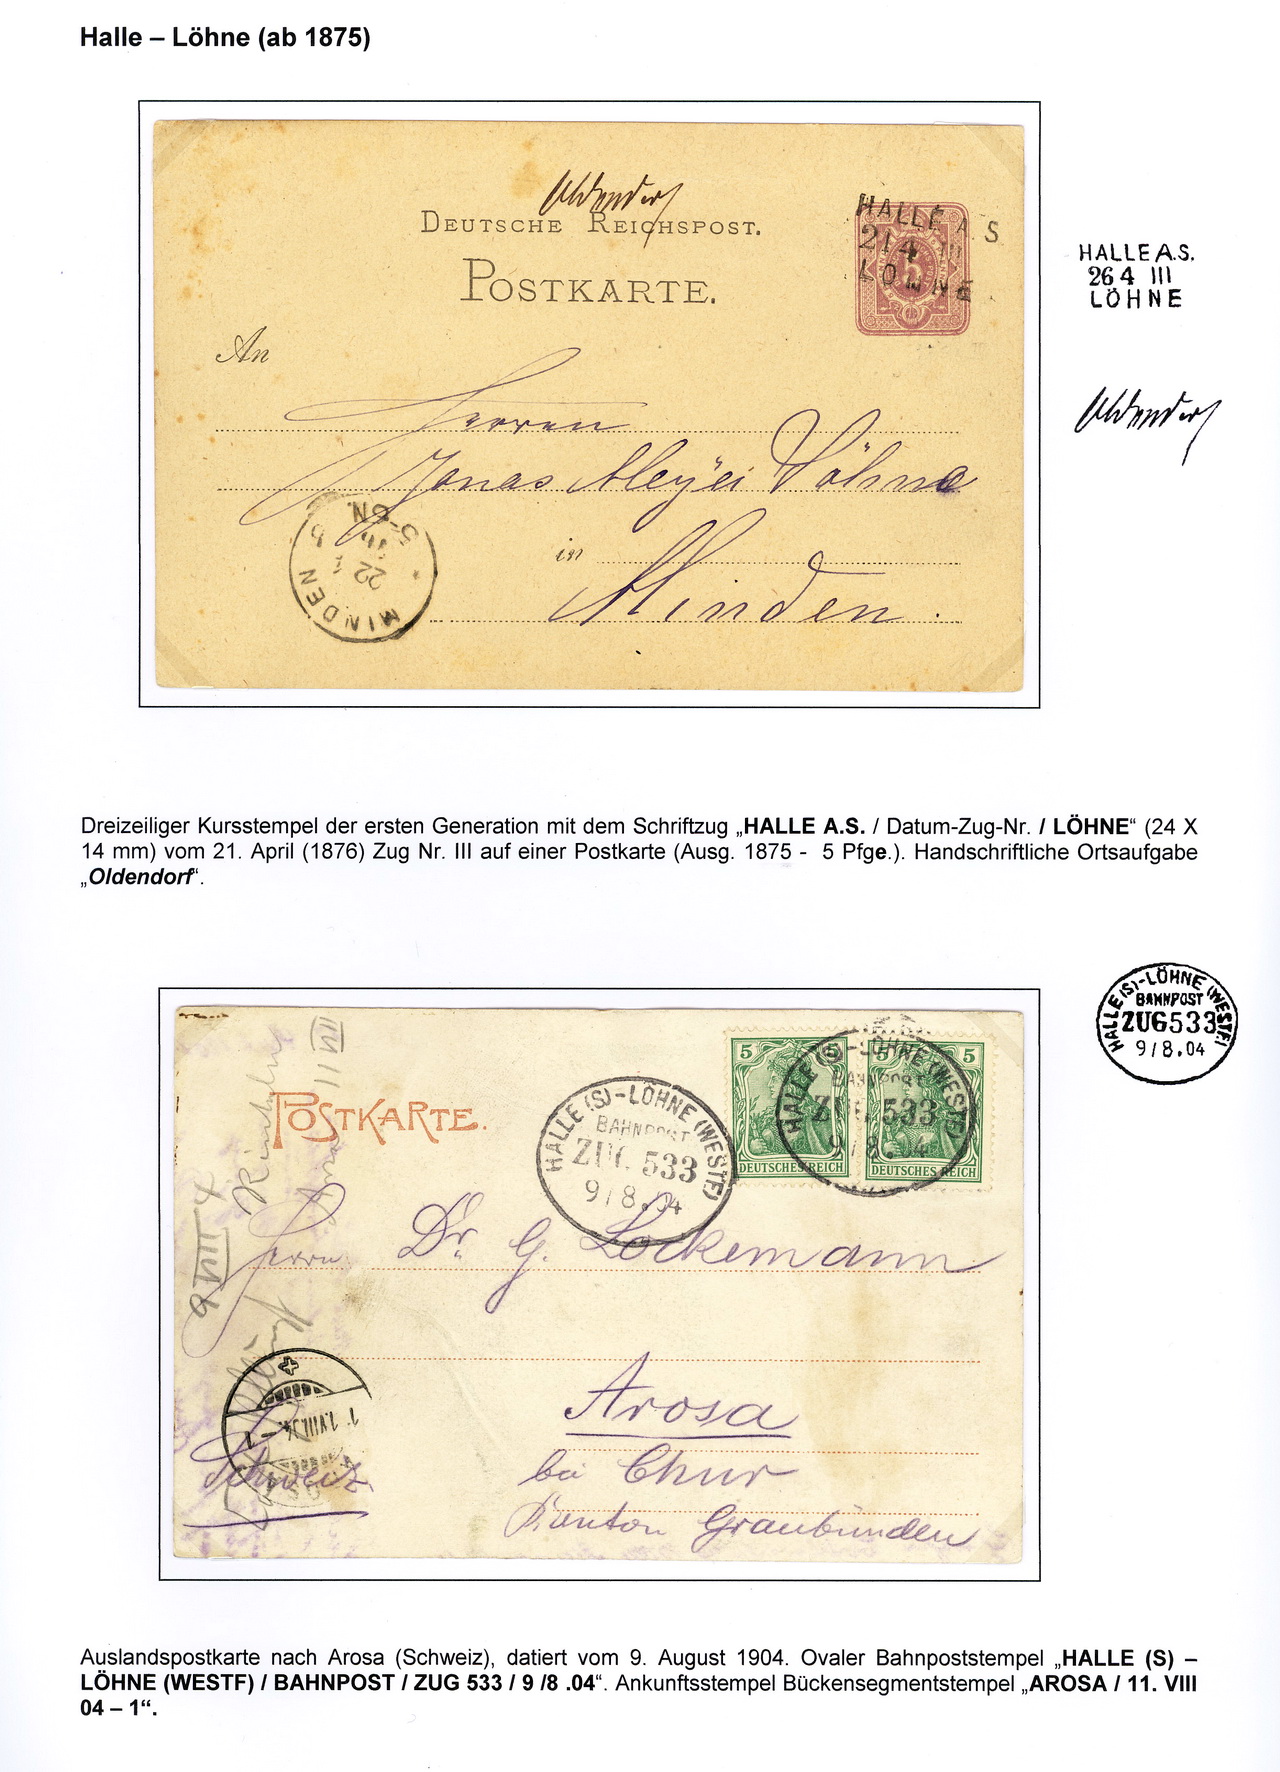 Halle – Löhne (ab 1875)
Oldendorf
DEUTSCHE REICHSPOST.
POSTKARTE.
HALLE A. S
21 4 III
LÖHNE
5
An
Herren
Jonas Meyer Söhne
in
Minden.
MINDEN
22
5-6N.
HALLE A.S.
26 4 III
LÖHNE
Oldendorf
Dreizeiliger Kursstempel der ersten Generation mit dem Schriftzug „HALLE A.S. / Datum-Zug-Nr. / LÖHNE“ (24 X
14 mm) vom 21. April (1876) Zug Nr. III auf einer Postkarte (Ausg. 1875 - 5 Pfge.). Handschriftliche Ortsaufgabe
„Oldendorf“.
HALLE (S)-LÖHNE (WESTF)
BAHNPOST
ZUG 533
9/8.04
POSTKARTE.
HALLE (S)-LÖHNE (WESTF)
BAHNPOST
ZUG 533
9/8.04
5 5 5
DEUTSCHES REICH DEUTSCHES REICH
HALLE (S)-LÖHNE (WESTF)
BAHNPOST
ZUG 533
9/8.04
9 VIII 4
Herrn Dr. G. Lockemann
Arosa
bei Chur
Kanton Graubünden
Schweiz
11.VIII.04.-1
Auslandspostkarte nach Arosa (Schweiz), datiert vom 9. August 1904. Ovaler Bahnpoststempel „HALLE (S) –
LÖHNE (WESTF) / BAHNPOST / ZUG 533 / 9 /8 .04“. Ankunftsstempel Bückensegmentstempel „AROSA / 11. VIII
04 – 1“.